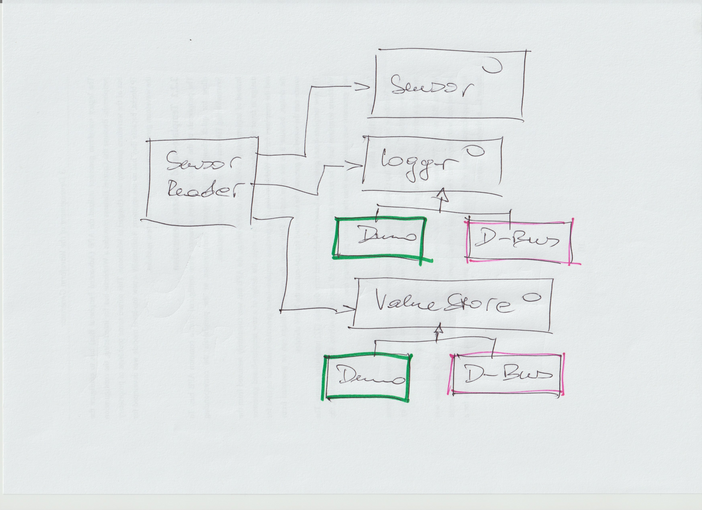 Sensor
Sensor
Reader
Logger
Demo
D-Bus
ValueStore
Demo
D-Bus